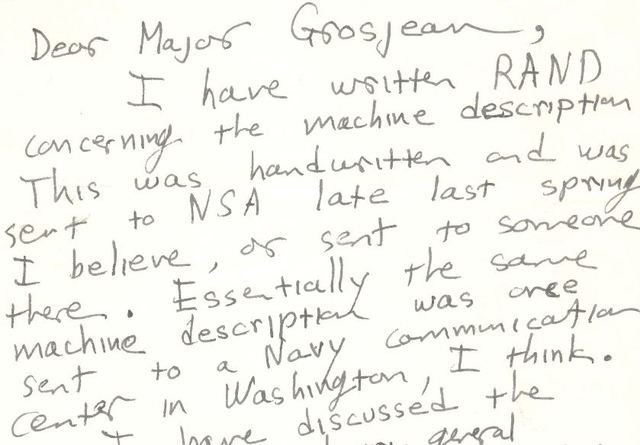 Dear Major Grosjean,
I have written RAND
concerning the machine description
This was handwritten and was
sent to NSA late last spring
I believe, or sent to someone
there. Essentially the same
machine description was once
sent to a Navy communication
center in Washington, I think.
I have discussed the
general